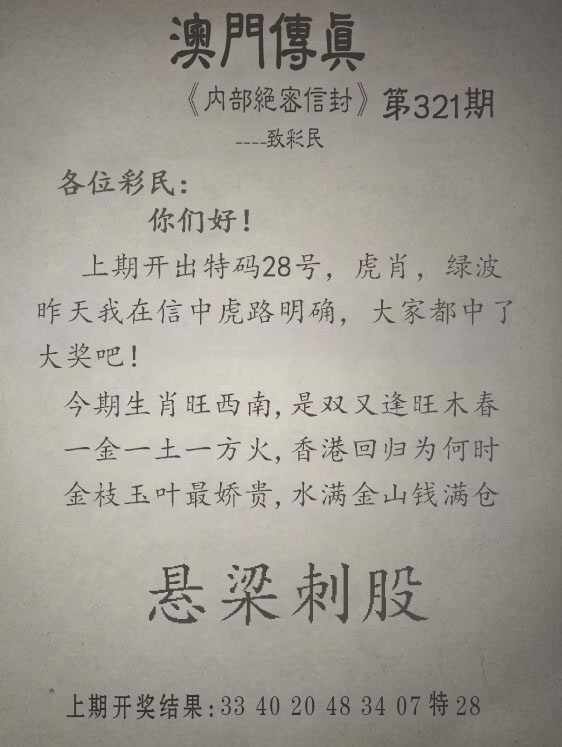 澳門傳真
《内部絕密信封》第321期
----致彩民
各位彩民：
你们好！
上期开出特码28号，虎肖，绿波
昨天我在信中虎路明确，大家都中了
大奖吧！
今期生肖旺西南,是双又逢旺木春
一金一土一方火,香港回归为何时
金枝玉叶最娇贵,水满金山钱满仓
悬梁刺股
上期开奖结果:33 40 20 48 34 07 特 28